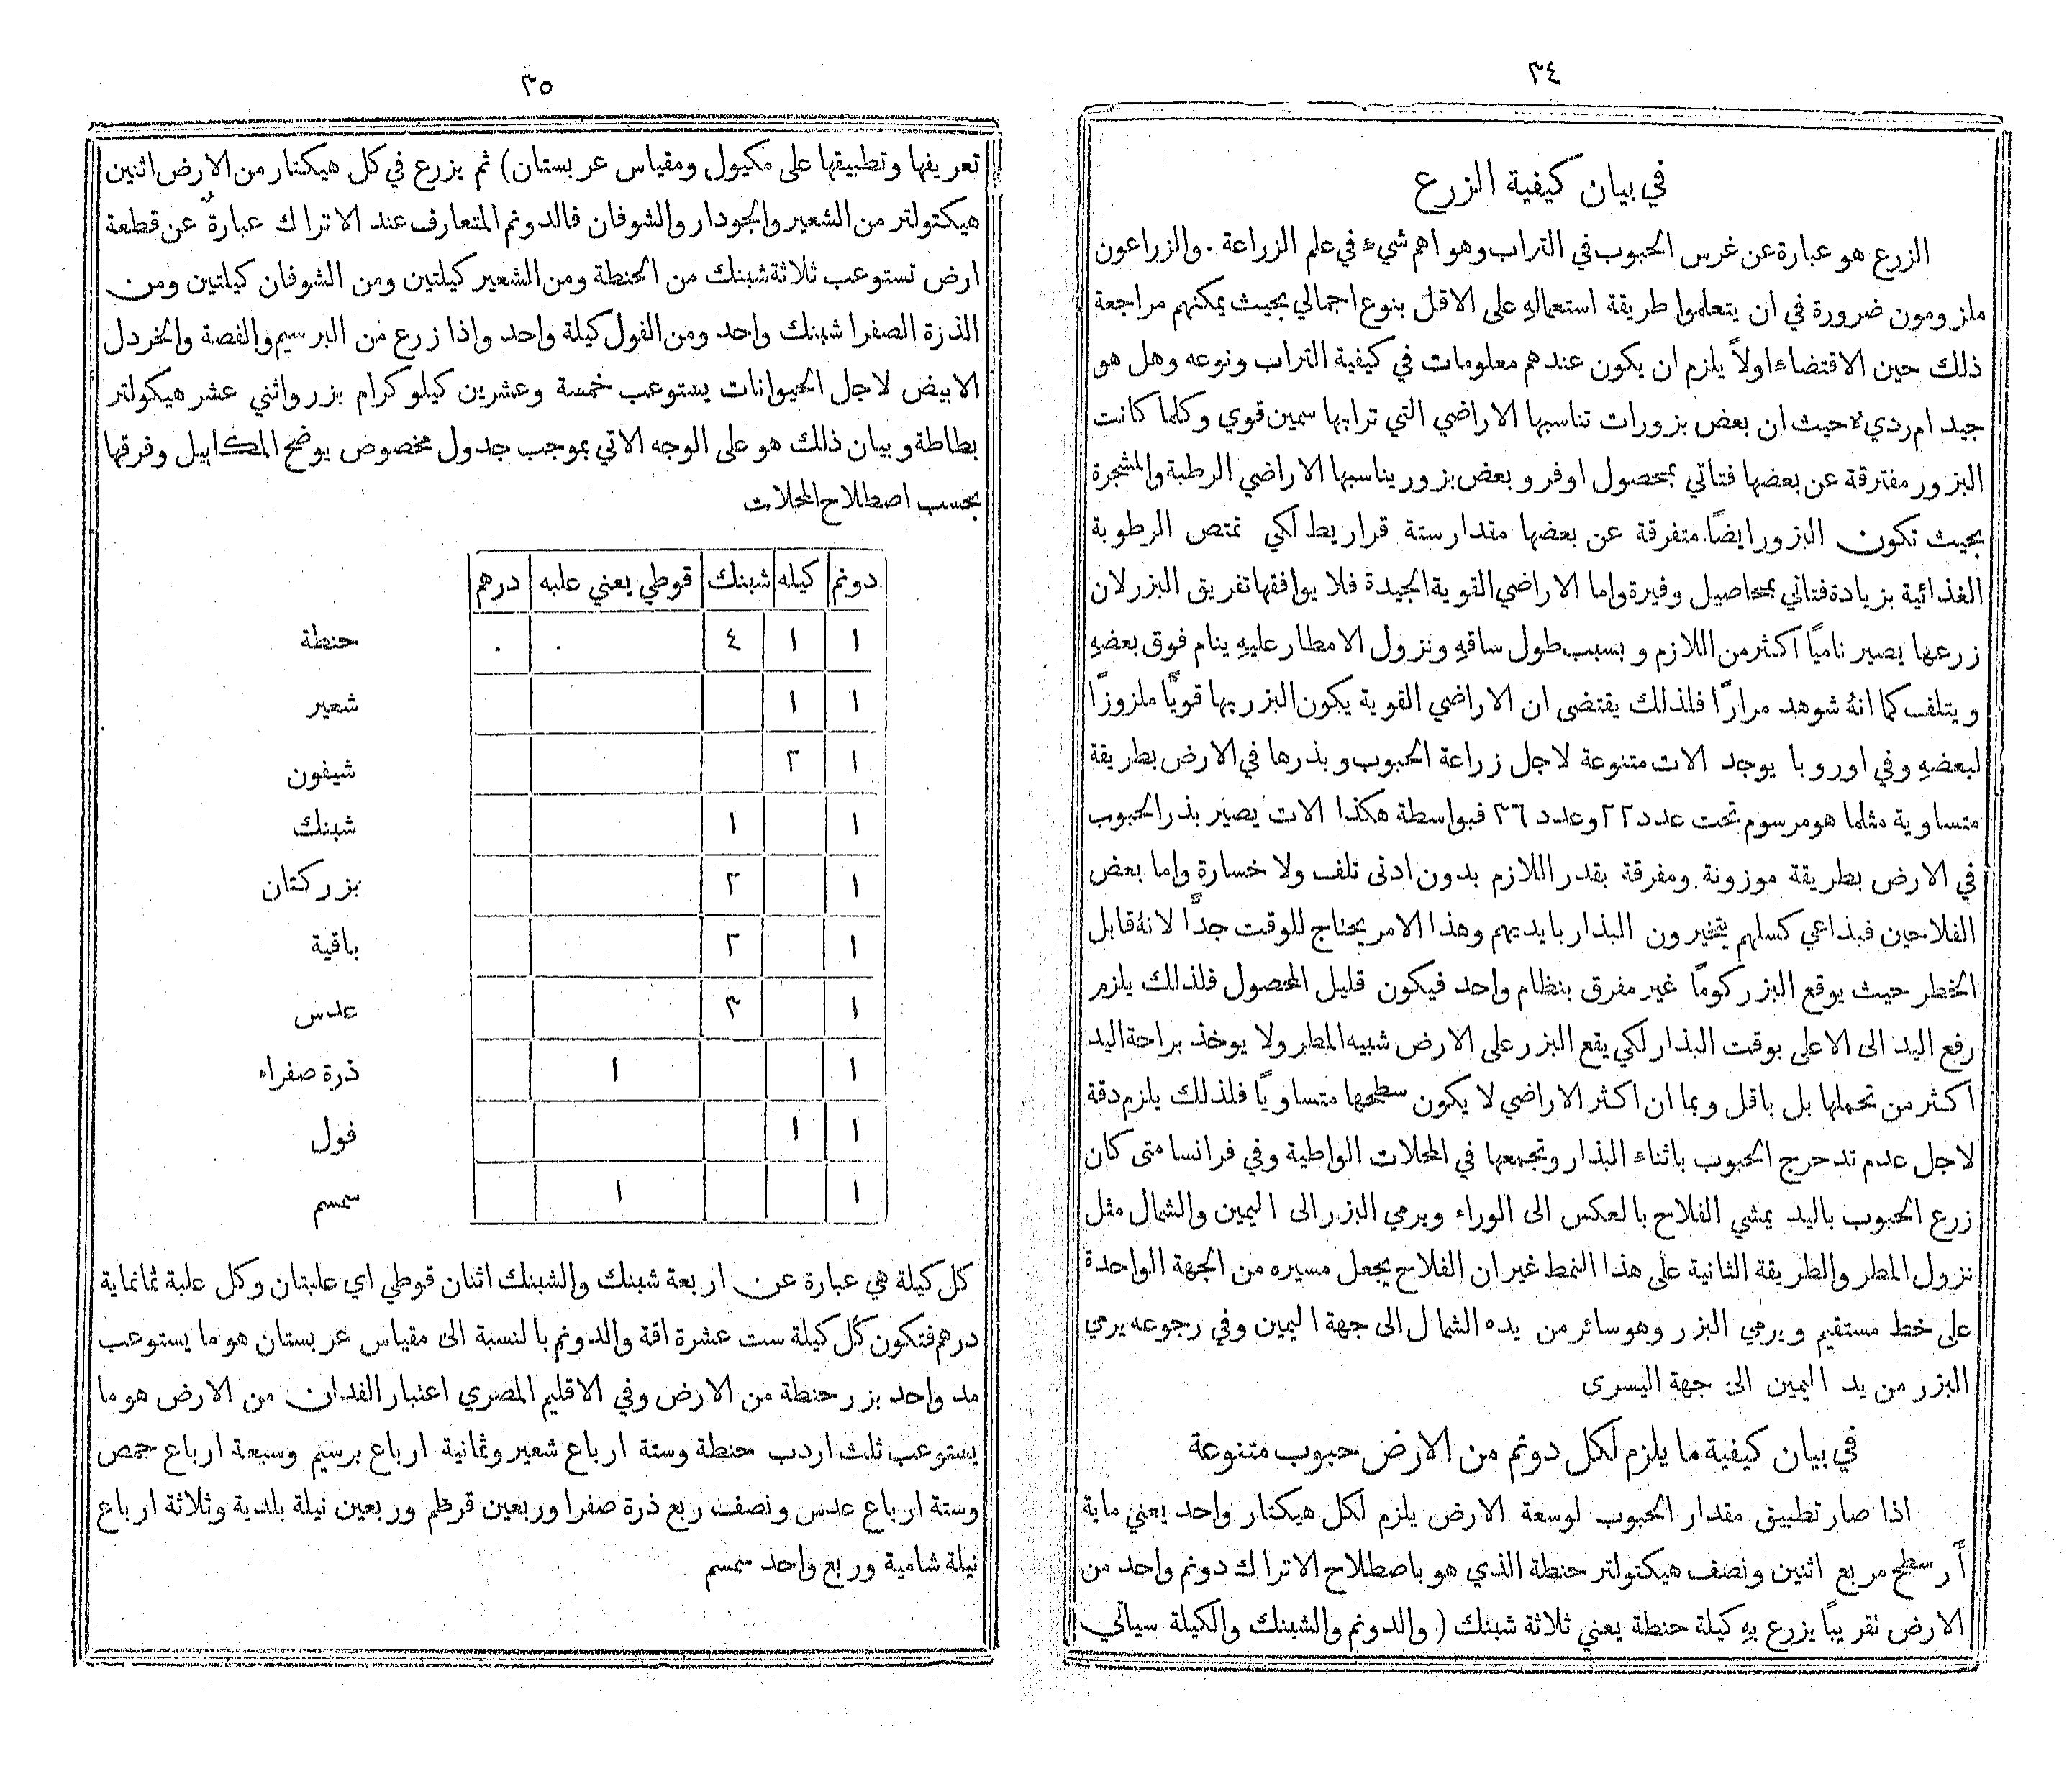 ٣٤
في بيان كيفية الزرع
الزرع هو عبارة عن غرس الحبوب في التراب وهو اهم شيءٍ في علم الزراعة . والزراعون
ملزومون ضرورة في ان يتعلموا طريقة استعمالهِ على الاقل بنوع اجمالي بحيث يمكنهم مراجعة
ذلك حين الاقتضاء اولاً يلزم ان يكون عندهم معلومات في كيفية التراب ونوعه وهل هو
جيد ام ردي حيث ان بعض بزورات تناسبها الاراضي التي ترابها سمين قوي وكلما كانت
البزور مفترقة عن بعضها فتاتي بمحصول اوفر وبعض بزور يناسبها الاراضي الرطبة والمشجرة
بحيث تكون البزور ايضًا متفرقة عن بعضها مقدار ستة قراريط لكي تمتص الرطوبة
الغذائية بزيادة فتاتي بمحاصيل وفيرة واما الاراضي القوية الجيدة فلا يوافقها تفريق البزر لان
زرعها يصير ناميًا اكثر من اللازم و بسبب طول ساقهِ ونزول الامطار عليهِ ينام فوق بعضهِ
ويتلف كما انهُ شوهد مرارًا فلذلك يقتضى ان الاراضي القوية يكون البزر بها قويًّا ملزوزًا
لبعضهِ وفي اوروبا يوجد الات متنوعة لاجل زراعة الحبوب وبذرها في الارض بطريقة
متساوية مثلما هو مرسوم تحت عدد ٢٢ وعدد ٣٦ فبواسطة هكذا الات يصير بذر الحبوب
في الارض بطريقة موزونة ومفرقة بقدر اللازم بدون ادنى تلف ولا خسارة واما بعض
الفلاحين فبداعي كسلهم يتخيرون البذار بايديهم وهذا الامر يحتاج للوقت جدًّا لانهُ قابل
الخطر حيث يوقع البزر كومًا غير مفرق بنظام واحد فيكون قليل المحصول فلذلك يلزم
رفع اليد الى الاعلى بوقت البذار لكي يقع البزر على الارض شبيه المطر ولا يوخذ براحة اليد
اكثر من تحملها بل باقل وبما ان اكثر الاراضي لا يكون سطحها متساويًا فلذلك يلزم دقة
لاجل عدم تدحرج الحبوب باثناء البذار وتجمعها في المحلات الواطية وفي فرانسا متى كان
زرع الحبوب باليد يمشي الفلاح بالعكس الى الوراء ويرمي البزر الى اليمين والشمال مثل
نزول المطر والطريقة الثانية على هذا النمط غير ان الفلاح يجعل مسيره من الجهة الواحدة
على خط مستقيم ويرمي البزر وهو سائر من يده الشمال الى جهة اليمين وفي رجوعه يرمي
البزر من يد اليمين الى جهة اليسرى
في بيان كيفية ما يلزم لكل دونم من الارض حبوب متنوعة
اذا صار تطبيق مقدار الحبوب لوسعة الارض يلزم لكل هيكتار واحد يعني ماية
أر سطح مربع اثنين ونصف هيكتولتر حنطة الذي هو باصطلاح الاتراك دونم واحد من
الارض تقريبًا يزرع بهِ كيلة حنطة يعني ثلاثة شبنك ( والدونم والشبنك والكيلة سياتي
٣٥
تعريفها وتطبيقها على مكيول ومقياس عربستان) ثم يزرع في كل هيكتار من الارض اثنين
هيكتولتر من الشعير والجودار والشوفان فالدونم المتعارف عند الاتراك عبارةٌ عن قطعة
ارض تستوعب ثلاثة شبنك من الحنطة ومن الشعير كيلتين ومن الشوفان كيلتين ومن
الذرة الصفرا شبنك واحد ومن الفول كيلة واحد واذا زرع من البرسيم والفصة والخردل
الابيض لاجل الحيوانات يستوعب خمسة وعشرين كيلوكرام بزر واثني عشر هيكولتر
بطاطة وبيان ذلك هو على الوجه الاتي بموجب جدول مخصوص يوضح المكاييل وفرقها
بحسب اصطلاح المحلات
دونم كيله شبنك قوطي يعني علبه درهم
١ ١ ٤ ٠ ٠ حنطة
١ ١ شعير
١ ٢ شيفون
١ ١ شبنك
١ ٢ بزر كتان
١ ٢ باقية
١ ٣ عدس
١ ١ ذرة صفراء
١ ١ فول
١ ١ سمسم
كل كيلة هي عبارة عن اربعة شبنك والشبنك اثنان قوطي اي علبتان وكل علبة ثمانماية
درهم فتكون كل كيلة ست عشرة اقة والدونم بالنسبة الى مقياس عربستان هو ما يستوعب
مد واحد بزر حنطة من الارض وفي الاقليم المصري اعتبار الفدان من الارض هو ما
يستوعب ثلث اردب حنطة وستة ارباع شعير وثمانية ارباع برسيم وسبعة ارباع حمص
وستة ارباع عدس ونصف ربع ذرة صفرا وربعين قرطم وربعين نيلة بلدية وثلاثة ارباع
نيلة شامية وربع واحد سمسم